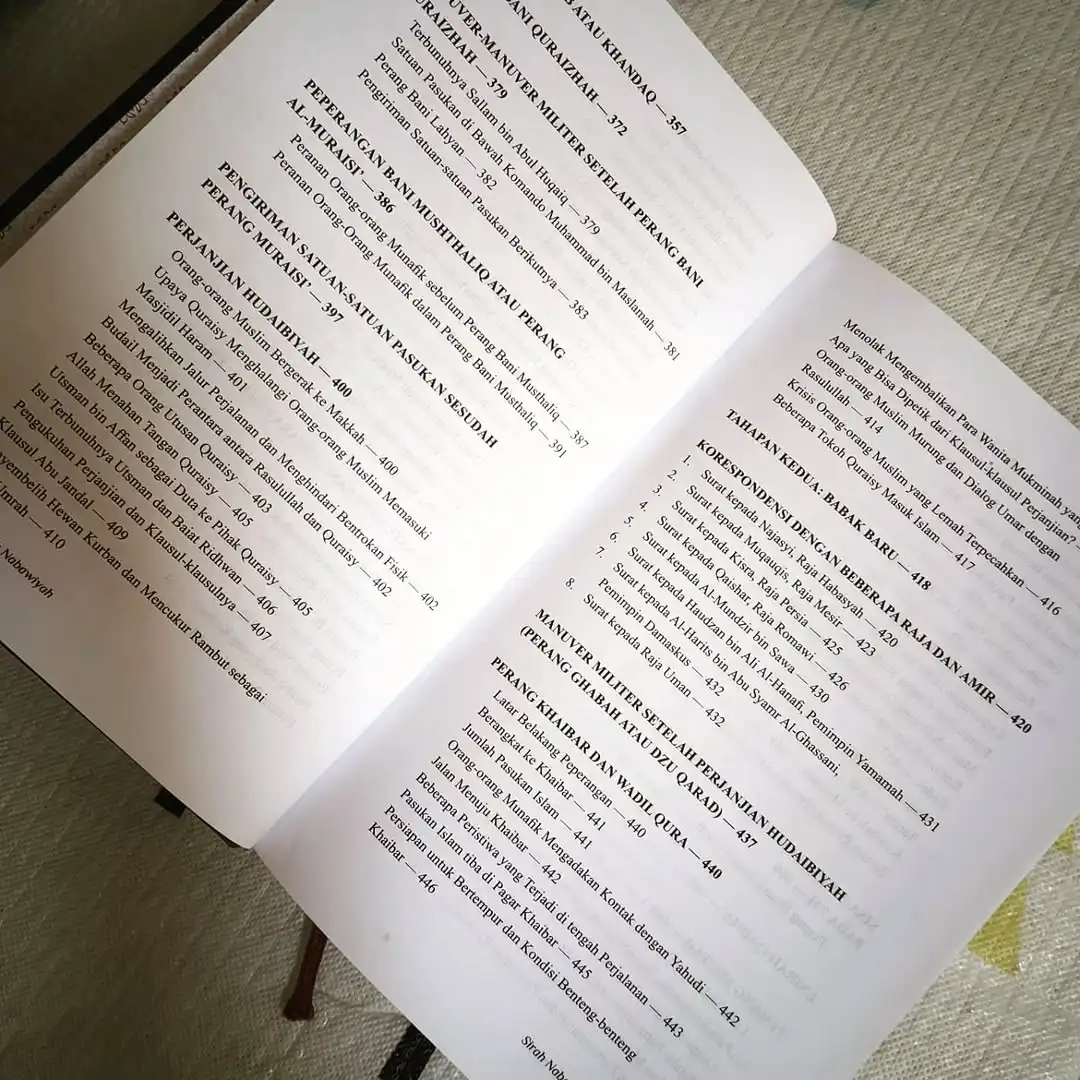 ATAU KHANDAQ — 357
BANI QURAIZHAH — 372
MANUVER-MANUVER MILITER SETELAH PERANG BANI
QURAIZHAH — 379
Terbunuhnya Sallam bin Abul Huqaiq — 379
Satuan Pasukan di Bawah Komando Muhammad bin Maslamah — 381
Perang Bani Lahyan — 382
Pengiriman Satuan-satuan Pasukan Berikutnya — 383
PEPERANGAN BANI MUSHTHALIQ ATAU PERANG
AL-MURAISI' — 386
Peranan Orang-orang Munafik sebelum Perang Bani Musthaliq — 387
Peranan Orang-Orang Munafik dalam Perang Bani Musthaliq — 391
PENGIRIMAN SATUAN-SATUAN PASUKAN SESUDAH
PERANG MURAISI' — 397
PERJANJIAN HUDAIBIYAH — 400
Orang-orang Muslim Bergerak ke Makkah — 400
Upaya Quraisy Menghalangi Orang-orang Muslim Memasuki
Masjidil Haram — 401
Mengalihkan Jalur Perjalanan dan Menghindari Bentrokan Fisik — 402
Budail Menjadi Perantara antara Rasulullah dan Quraisy — 402
Beberapa Orang Utusan Quraisy — 403
Allah Menahan Tangan Quraisy — 405
Utsman bin Affan sebagai Duta ke Pihak Quraisy — 405
Isu Terbunuhnya Utsman dan Baiat Ridhwan — 406
Pengukuhan Perjanjian dan Klausul-klausulnya — 407
Klausul Abu Jandal — 409
Hewan Kurban dan Mencukur Rambut sebagai
Umrah — 410
Nabawiyah
Menolak Mengembalikan Para Wanita Mukminah yang
Apa yang Bisa Dipetik dari Klausul-klausul Perjanjian?
Orang-orang Muslim Murung dan Dialog Umar dengan
Rasulullah — 414
Krisis Orang-orang Muslim yang Lemah Terpecahkan — 416
Beberapa Tokoh Quraisy Masuk Islam — 417
TAHAPAN KEDUA: BABAK BARU — 418
KORESPONDENSI DENGAN BEBERAPA RAJA DAN AMIR — 420
1. Surat kepada Najasyi, Raja Habasyah — 420
2. Surat kepada Muqauqis, Raja Mesir — 423
3. Surat kepada Kisra, Raja Persia — 425
4. Surat kepada Qaishar, Raja Romawi — 426
5. Surat kepada Al-Mundzir bin Sawa — 430
6. Surat kepada Haudzah bin Ali Al-Hanafi, Pemimpin Yamamah — 431
7. Surat kepada Al-Harits bin Abu Syamr Al-Ghassani,
Pemimpin Damaskus — 432
8. Surat kepada Raja Uman — 432
MANUVER MILITER SETELAH PERJANJIAN HUDAIBIYAH
(PERANG GHABAH ATAU DZU QARAD) — 437
PERANG KHAIBAR DAN WADIL QURA — 440
Latar Belakang Peperangan — 440
Berangkat ke Khaibar — 441
Jumlah Pasukan Islam — 441
Orang-orang Munafik Mengadakan Kontak dengan Yahudi — 442
Jalan Menuju Khaibar — 442
Beberapa Peristiwa yang Terjadi di tengah Perjalanan — 443
Pasukan Islam tiba di Pagar Khaibar — 445
Persiapan untuk Bertempur dan Kondisi Benteng-benteng
Khaibar — 446
Sirah